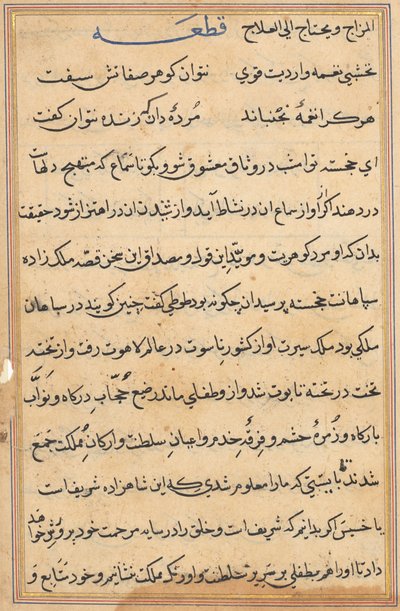 المزاج ویحتاج الی العلاج قطعه
نخشبی نغمه واردیت قوی نتوان کوهر صفاتش سفت
هر کرا نغمهٔ نجنباند مردهٔ دان که زنده نتوان کفت
ای خجسته تو امشب در وثاق معشوق شو و بکو تا سماع که مبهج دلهات
در دهند اکر او از سماع ان در نشاط آید و از شنیدن ان در اهتزاز شود حقیقت
بدان که او مرد کوهریت و مویّد این قول و مصداق این سخن قصّه ملک زاده
سپاهانت خجسته پرسید ان چکونه بود طوطی کفت چنین کویند در سپاهان
ملکی بود ملک سیرت او از کشور ناسوت در عالم لاهوت رفت و از تخته
تخت در تخته تابوت شد و از و طفلی ماند رضیع حُجّاب درکاه و نوّاب
بارکاه و زمرهٔ حشم و فرقهٔ خدم و اعیان سلطنت و ارکان مملکت جمع
شدند تا ببیتی که ما را معلوم شدی که این شاهزاده شریف است
یا خسیس اکر بدانیم که شریف است و خلق را در سایه مرحمت خود پرورش خواهد
داد تا او را هم بطفلی بر سریر سلطنت و اورنک مملکت بنشانیم و خود متابع و